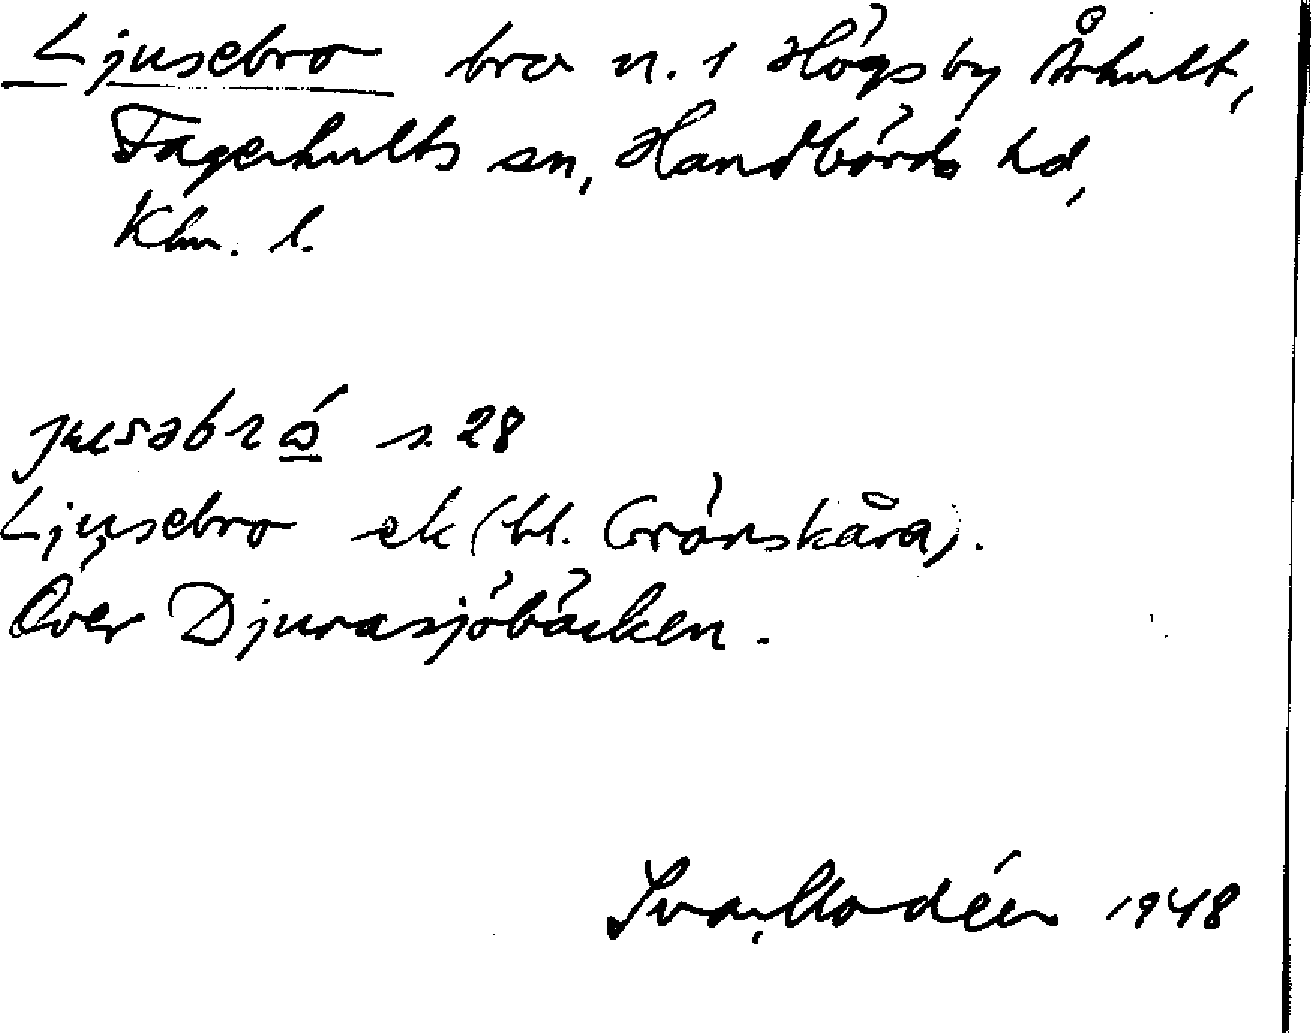 Ljusebro bro n. 1 Högsby Århult,
Fagerhults sn, Handbörds hd,
Klm. l.
s. 28
Ljusebro ek (bl. Grönskåra).
Över Djurasjöbäcken.
Ivar Modéer 1948